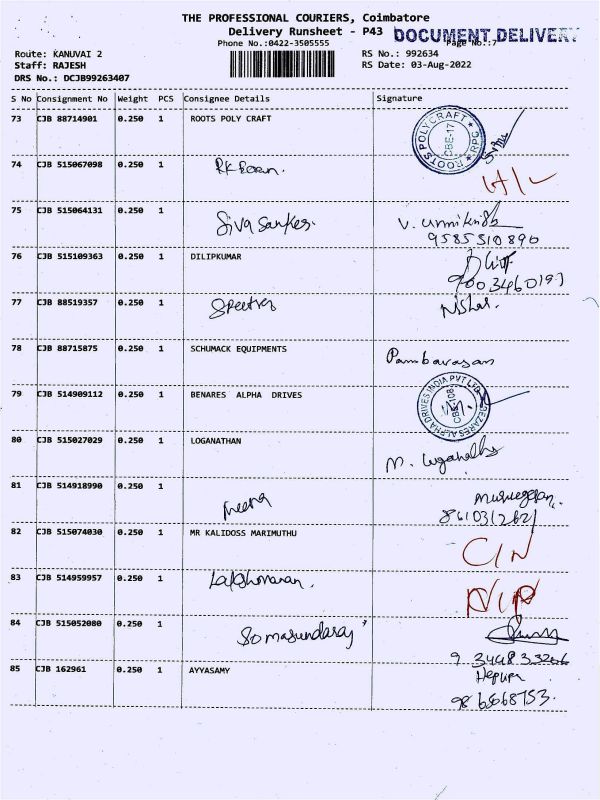 THE PROFESSIONAL COURIERS, Coimbatore
Delivery Runsheet - P43 DOCUMENT DELIVERY
Phone No.:0422-3505555 Page No.:7
Route: KANUVAI 2 RS No.: 992634
Staff: RAJESH RS Date: 03-Aug-2022
DRS No.: DCJB99263407
S No Consignment No Weight PCS Consignee Details Signature
73 CJB 88714901 0.250 1 ROOTS POLY CRAFT
ROOTS POLYCRAFT RPG CBE-17
74 CJB 515067098 0.250 1 RK
H/L
75 CJB 515064131 0.250 1 Siva Sankes. V.
9585510890
76 CJB 515109363 0.250 1 DILIPKUMAR
77 CJB 88519357 0.250 1 Nishal.
78 CJB 88715875 0.250 1 SCHUMACK EQUIPMENTS Pambavasan
79 CJB 514909112 0.250 1 BENARES ALPHA DRIVES
ALPHA DRIVES INDIA PVT LTD
80 CJB 515027029 0.250 1 LOGANATHAN
M.
81 CJB 514918990 0.250 1 Meena
82 CJB 515074030 0.250 1 MR KALIDOSS MARIMUTHU C/N
83 CJB 514959957 0.250 1
84 CJB 515052080 0.250 1 Somasundaraj
85 CJB 162961 0.250 1 AYYASAMY